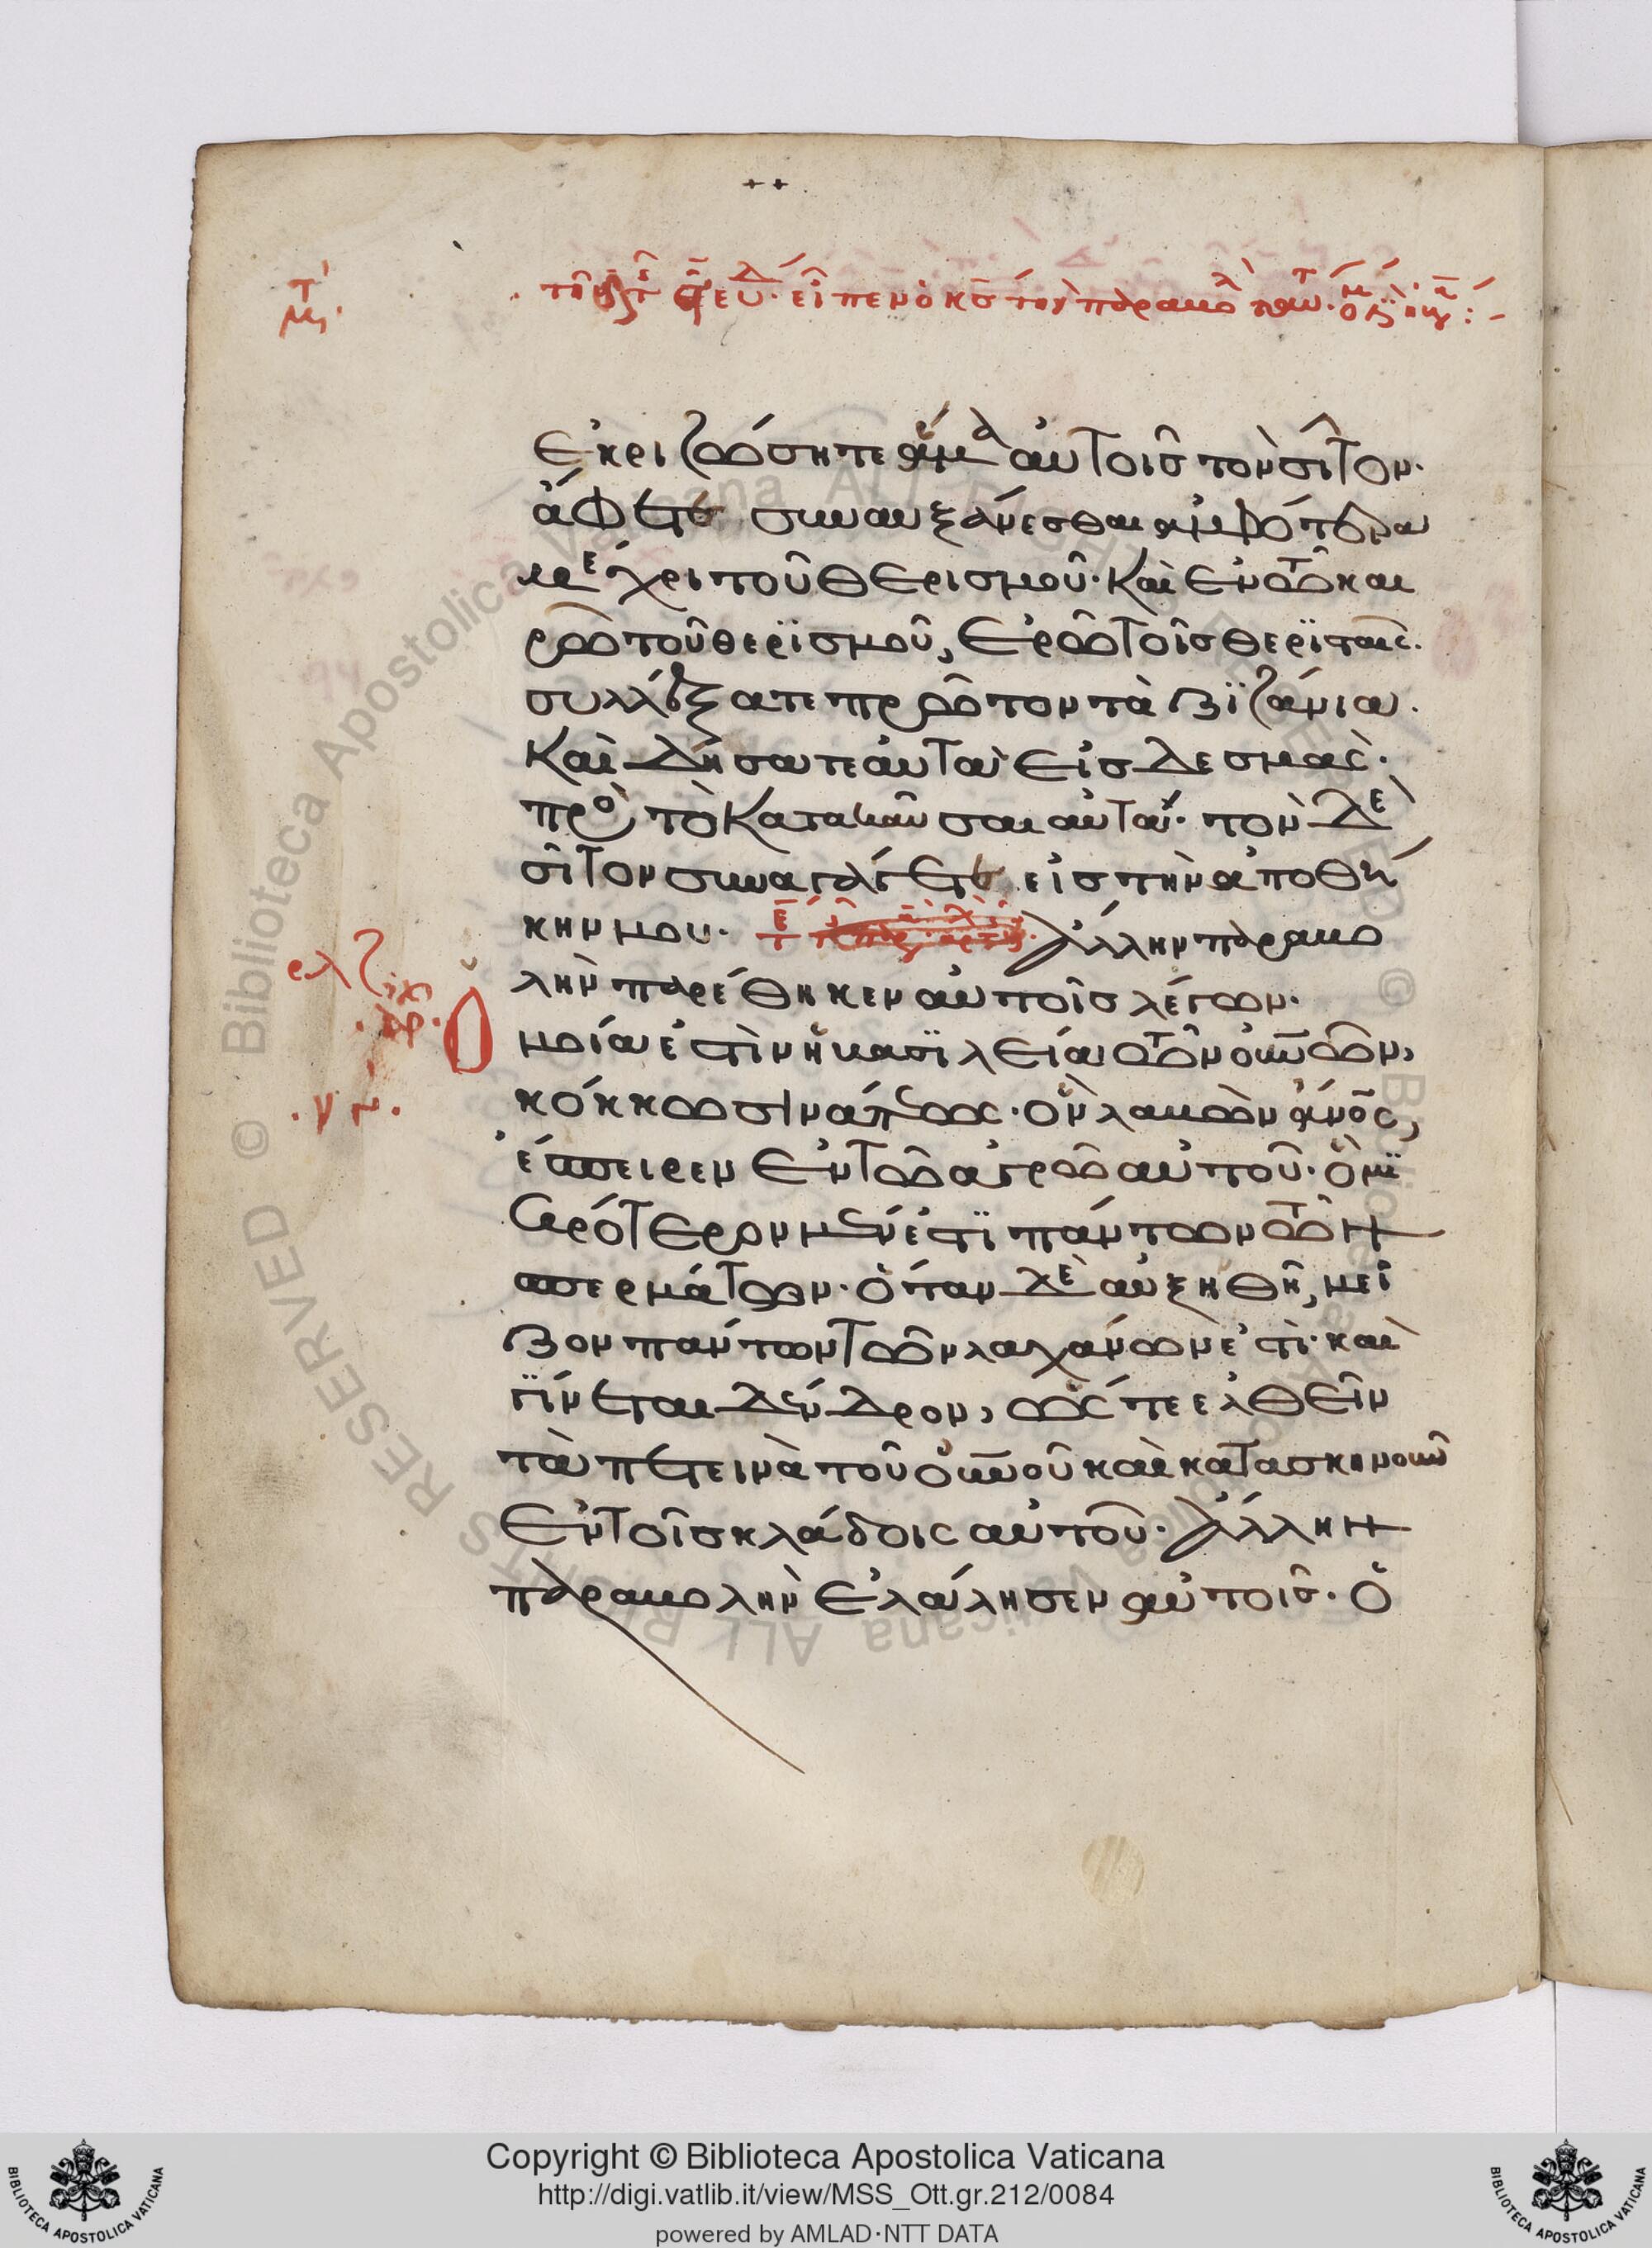 εἶπεν ὁ κς τὴν παραβολ
ἐκριζώσητε ἅμα αὐτοῖς τὸν σῖτον.
ἄφετε συναυξάνεσθαι ἀμφότερα
μέχρι τοῦ θερισμοῦ. καὶ ἐν τῶ και
ρῶ τοῦ θερϊσμοῦ, ἐρῶ τοῖς θερϊσταῖς.
συλλέξατε πρῶτον τὰ ζϊζάνια.
καὶ δήσατε αὐτὰ εἰς δεσμὰς.
πρὸς τὸ κατακαῦσαι αὐτά. τὸν δὲ
σῖτον συναγάγετε εἰς τὴν ἀποθή
κην μου. Ἄλλην παραβο
λὴν παρέθηκεν αὐτοῖς λέγων.
μοία ἐστὶν ἡ βασϊλεία τῶν οὐνῶν,
κόκκω σινάπεως. ὃν λαβὼν ἄνος,
ἔσπειρεν ἐν τῶ ἀγρῶ αὐτοῦ. ὃ μϊ
κρότερον μέν ἐστϊ πάντων τῶν
σπερμάτων. ὅταν δὲ αὐξηθῆ, μεῖ
ζον πάντων τῶν λαχάνων ἐστὶ. καὶ
γϊνεται δένδρον, ὥστε ἐλθεῖν
τὰ πετεινὰ τοῦ οὐνοῦ καὶ κατασκηνοῦν
ἐν τοῖς κλάδοις αὐτοῦ. Ἄλλην
παραβολὴν ἐλάλησεν αὐτοῖς. ὁ
Copyright © Biblioteca Apostolica Vaticana
http://digi.vatlib.it/view/MSS_Ott.gr.212/0084
powered by AMLAD·NTT DATA
BIBLIOTECA APOSTOLICA VATICANA
BIBLIOTECA APOSTOLICA VATICANA